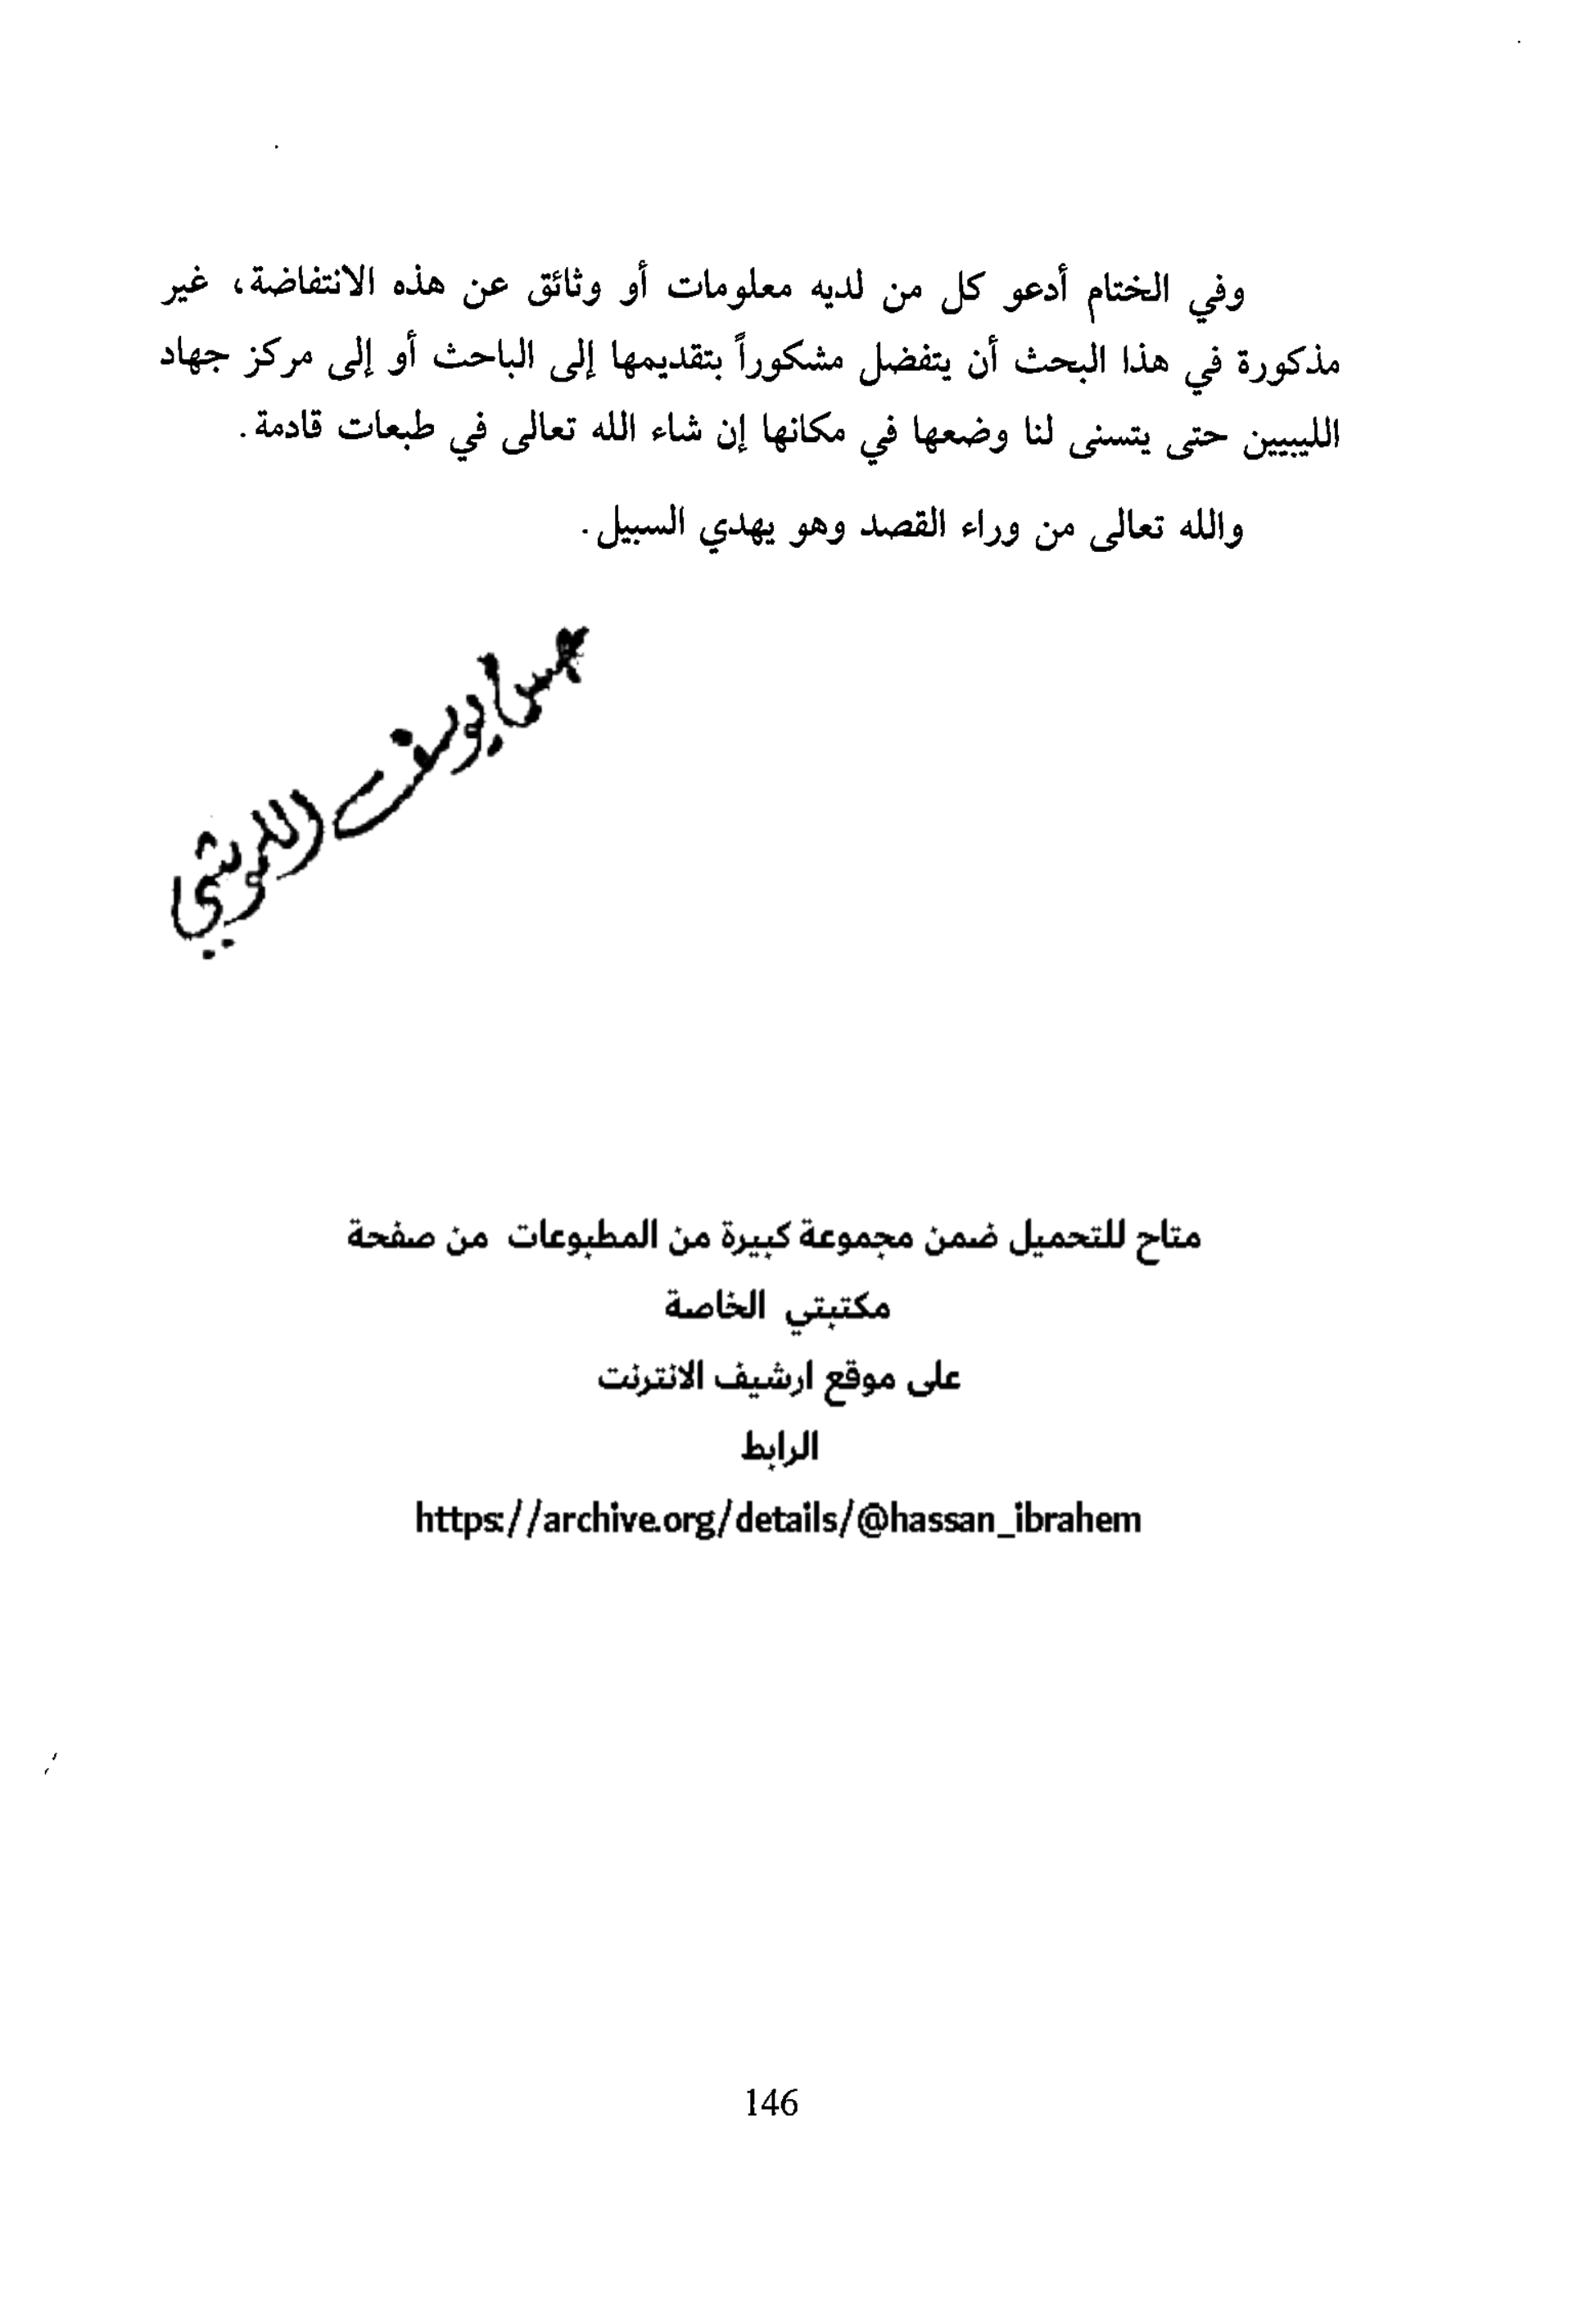 وفي الختام أدعو كل من لديه معلومات أو وثائق عن هذه الانتفاضة، غير
مذكورة في هذا البحث أن يتفضل مشكوراً بتقديمها إلى الباحث أو إلى مركز جهاد
الليبيين حتى يتسنى لنا وضعها في مكانها إن شاء الله تعالى في طبعات قادمة.
والله تعالى من وراء القصد وهو يهدي السبيل.
يوسف
متاح للتحميل ضمن مجموعة كبيرة من المطبوعات من صفحة
مكتبتي الخاصة
على موقع ارشيف الانترنت
الرابط
https://archive.org/details/@hassan_ibrahem
146